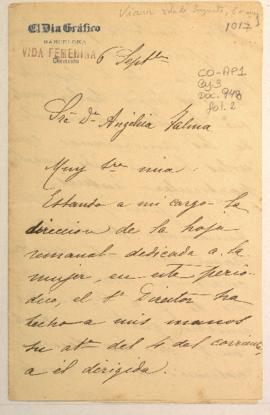 El Día Gráfico
BARCELONA
VIDA FEMENINA
Dirección
1017
6 Septbre
CO-AP1
Caj.3
Doc. 948
fol. 2
Sra Da Angélica Palma
Muy Sra mia.
Estando a mi cargo la
direccion de la hoja
semanal dedicada a la
mujer, en este perio-
dico, el Sr Director ha
hecho a mis manos
su ata del 4 del corriente,
a el dirigida.